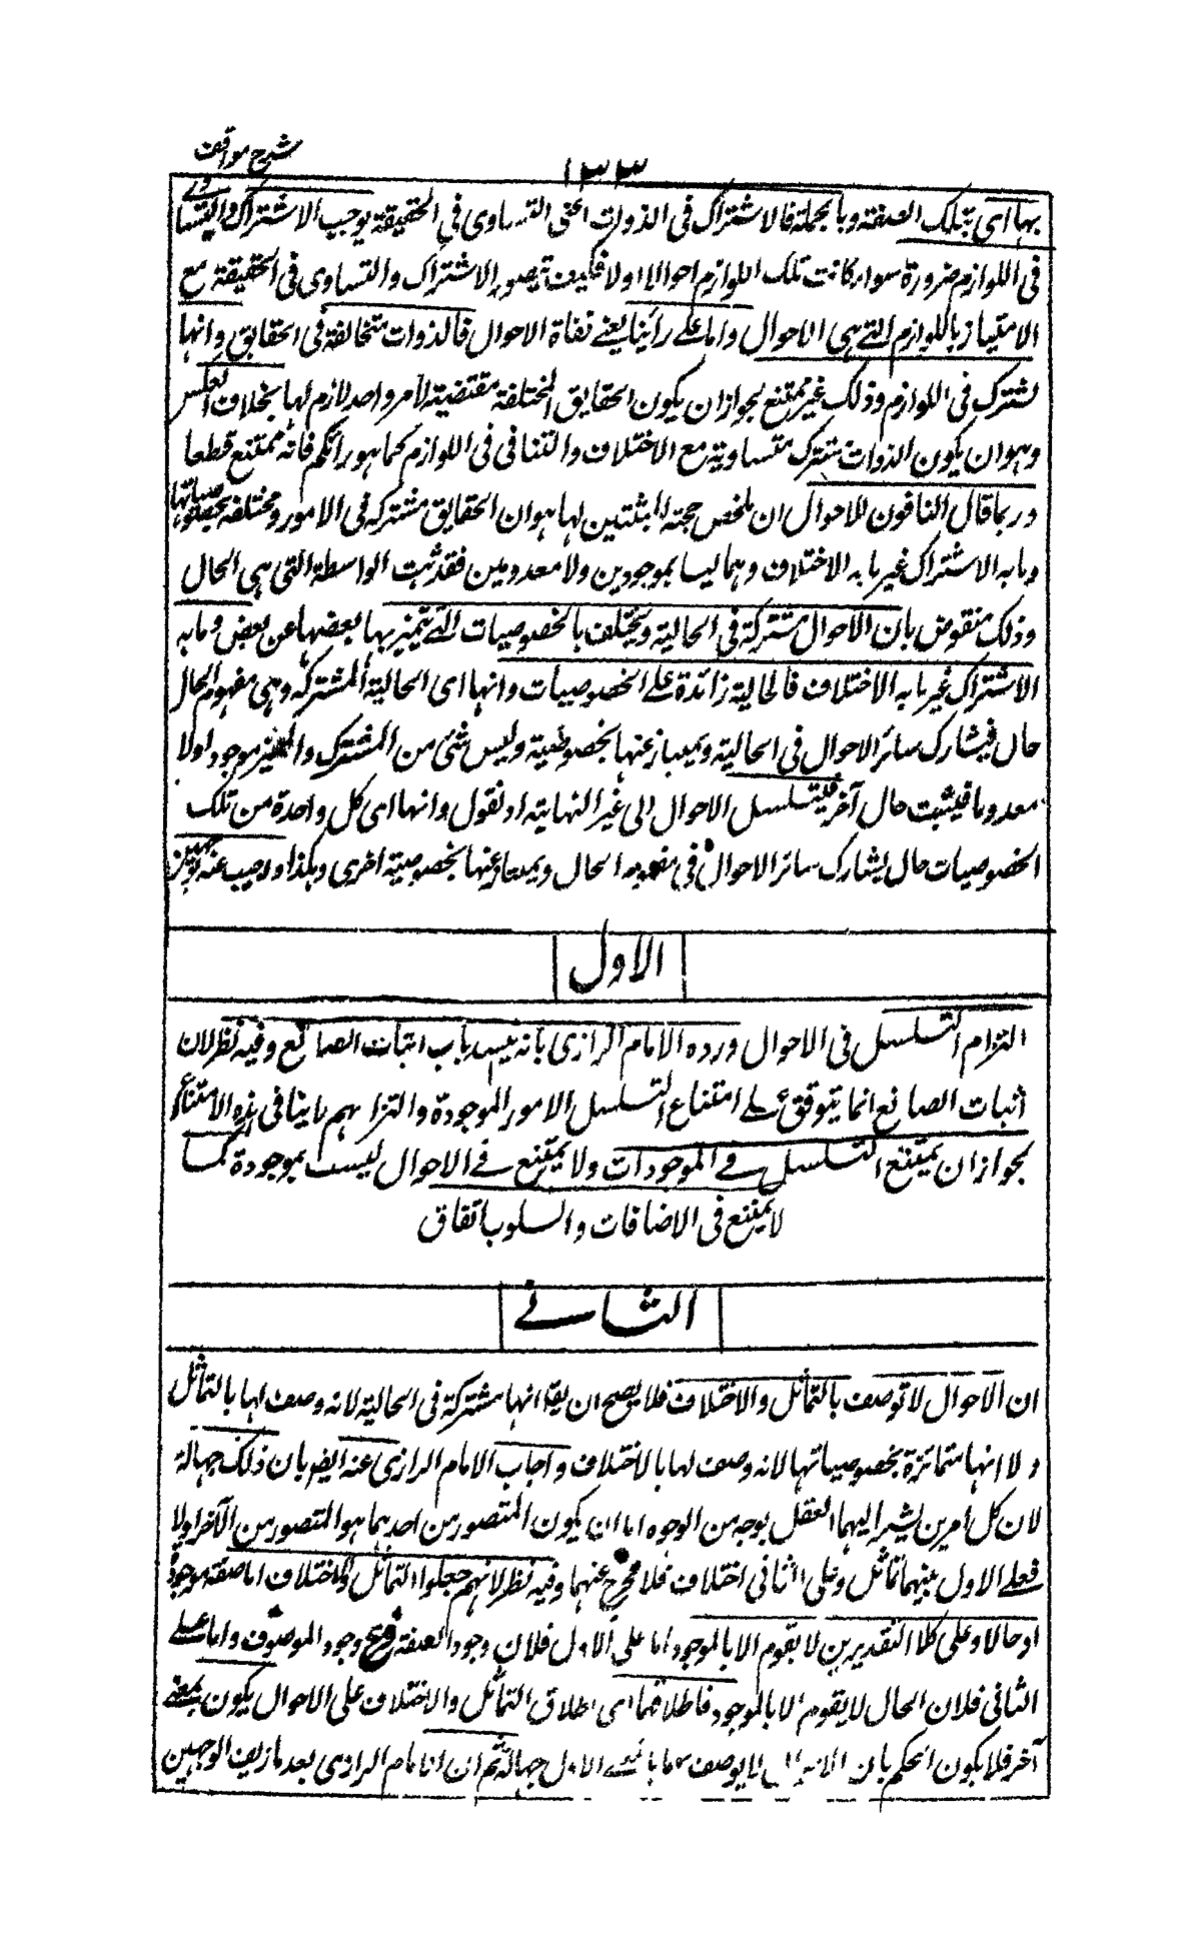 شرح مواقف
١٣٣
بها اى بتلك الصفة وبالجملة فالاشتراك فى الذوات اعنى التساوى فى الحقيقة يوجب الاشتراك والتساوى
فى اللوازم ضرورة سواء كانت تلك اللوازم احوالا اولا فكيف يتصور الاشتراك والتساوى فى الحقيقة مع
الامتياز باللوازم التے ہى الاحوال واما على رأينا يعنے نفاة الاحوال فالذوات متخالفة فى الحقايق وانها
تشترك فى اللوازم وذلك غير ممتنع لجواز ان يكون الحقايق المختلفة مقتضية لامر واحد لازم لها بخلاف العكس
وہو ان يكون الذوات تشترك متساوية مع الاختلاف والتنافى فى اللوازم كما ہو رائكم فانه ممتنع قطعا
وربما قال النافون للاحوال ان ملخص حجة المثبتين لها ہو ان الحقايق مشتركة فى الامور ومختلفة بخصوصياتها
وما به الاشتراك غير ما به الاختلاف وہما ليسا بموجودين ولا معدومين فقد ثبت الواسطة التى ہى الحال
وذلك منقوض بان الاحوال مشتركة فى الحالية ويختلف بالخصوصيات التے يتميز بها بعضها عن بعض وما به
الاشتراك غير ما به الاختلاف فالحالية زائدة على الخصوصيات وانها اى الحالية المشتركة وہى مفہوم الحال
حال فيشارك سائر الاحوال فى الحالية ويمتاز عنها بخصوصية وليس شئ من المشترك والمميز موجودا ولا
معدوما فيثبت حال آخر فيتسلسل الاحوال الى غير النهاية او نقول وانها اى كل واحدة من تلك
الخصوصيات حال يشارك سائر الاحوال فى مفهوم الحال ويمتاز عنها بخصوصية اخرى وہكذا واجيب عنه بوجهين
الاول
التزام التسلسل فى الاحوال ورده الامام الرازى بانه يسد باب اثبات الصانع وفيه نظر لان
اثبات الصانع انما يتوقف على امتناع التسلسل الامور الموجودة والتزامهم ما ينافى ہذه الامتناع
لجواز ان يمتنع التسلسل فے الموجودات ولا يمتنع فے الاحوال ليست بموجودة كما
لا يمتنع فى الاضافات والسلوب اتفاق
الثانے
ان الاحوال لا توصف بالتماثل والاختلاف فلا يصح ان يقا انها مشتركة فى الحالية لانه وصف لها بالتماثل
ولا انها متمائزة بخصوصياتها لانه وصف لها بالاختلاف واجاب الامام الرازى عنه ايضا بان ذلك جهالة
لان كل امرين يشير اليهما العقل بوجه من الوجوه اما ان يكون المتصور من احدہما ہو المتصور من الآخر اولا
فعلى الاول بينهما تماثل وعلى الثانى اختلاف فلا مخرج عنهما وفيه نظر لانهم جعلوا التماثل والاختلاف اما صفة موجودة
او حالا وعلى كلا التقديرين لا يقوم الا بالموجود اما على الاول فلان وجود الصفة فرع وجود الموصوف واما على
الثانى فلان الحال لا يقوم الا بالموجود فاطلاقهما اى اطلاق التماثل والاختلاف على الاحوال يكون بمعنے
آخر فلا يكون الحكم بان الاحوال لا يوصف بهما بالمعنے الاول جهالة ثم ان الامام الرازى بعد ما زيف الوجهين